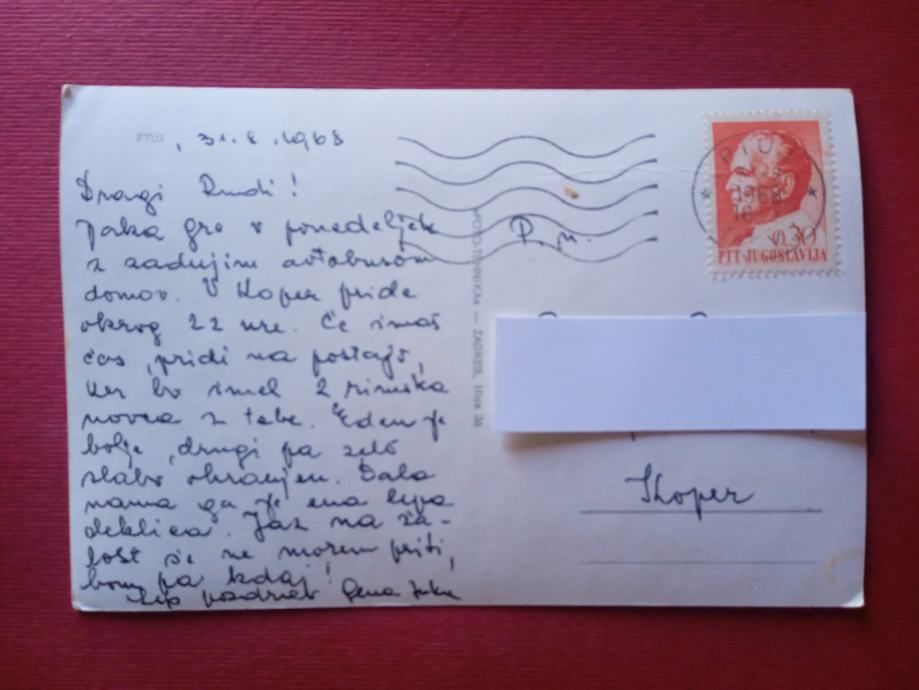 PTUJ, 31.8.1968
Dragi Rudi!
Jaka gre v ponedeljek
z zadnjim avtobusom
domov. V Koper pride
okrog 22 ure. Če imaš
čas, pridi na postajo,
ker bo imel 2 rimska
novca za tebe. Eden je
bolje, drugi pa zelo
slabo ohranjen. Dala
nama ga je ena lepa
deklica. Jaz na ža-
lost še ne morem priti,
bom pa kdaj!
Lep pozdrav
»FOTO-TEHNIKA« — ZAGREB, Ilica 36
P. n.
Koper
PTUJ
1968
0,30
PTT-JUGOSLAVIJA